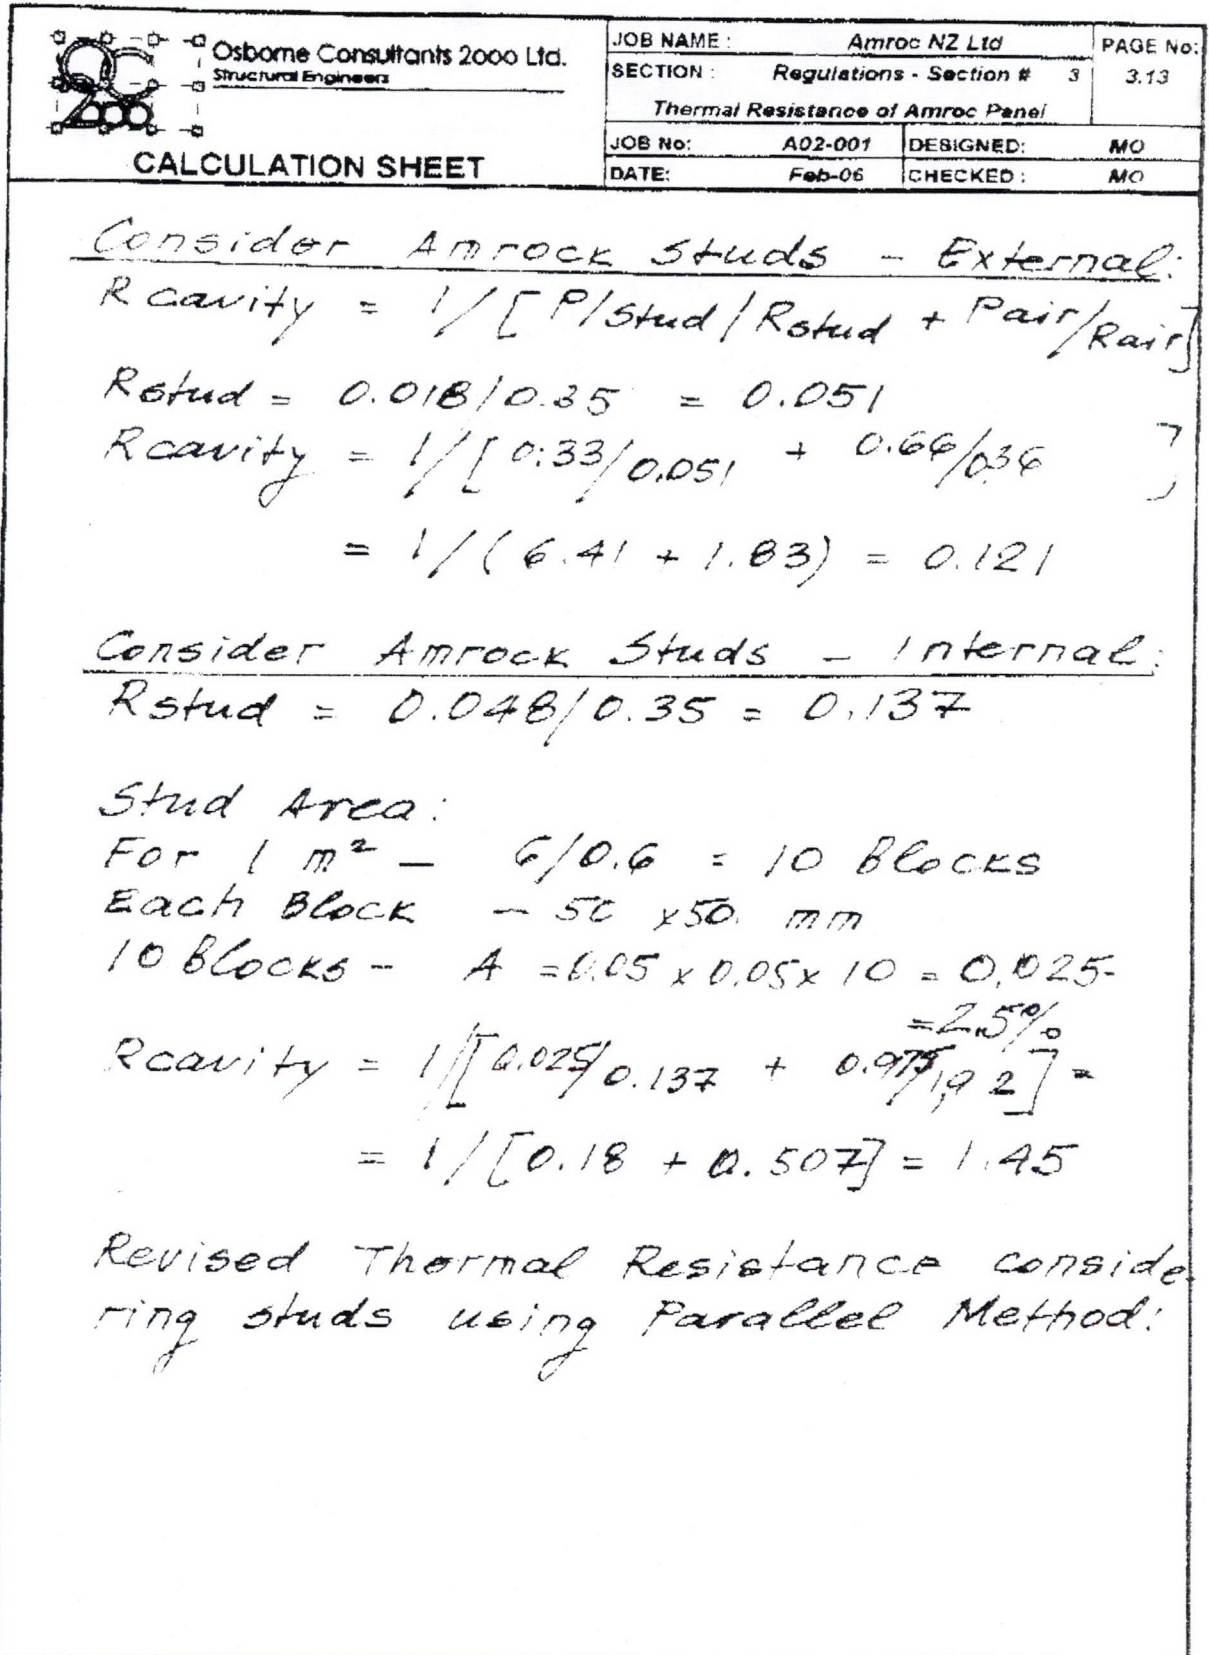 Osborne Consultants 2000 Ltd.
Structural Engineers
OC
2000
CALCULATION SHEET
JOB NAME : Amroc NZ Ltd
PAGE No:
SECTION : Regulations - Section # 3
3.13
Thermal Resistance of Amroc Panel
JOB No: A02-001 DESIGNED: MO
DATE: Feb-06 CHECKED : MO
Consider Amrock Studs - External:
R cavity = 1/[P/stud/Rstud + Pair/Rair]
Rstud = 0.018/0.35 = 0.051
Rcavity = 1/[0.33/0.051 + 0.66/0.36 ]
= 1/(6.41 + 1.83) = 0.121
Consider Amrock Studs - Internal:
Rstud = 0.048/0.35 = 0.137
Stud Area:
For 1 m² - 6/0.6 = 10 Blocks
Each Block - 50 x50. mm
10 Blocks - A = 0.05 x 0.05 x 10 = 0.025-
=2.5%
Rcavity = 1/[0.025/0.137 + 0.975/1,92] =
= 1/[0.18 + 0.507] = 1.45
Revised Thermal Resistance conside
ring studs using Parallel Method: